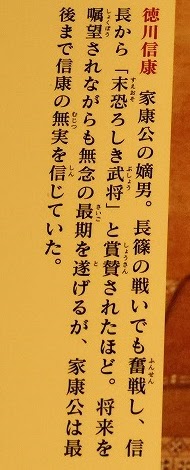 徳川信康　家康公の嫡男。長篠の戦いでも奮戦し、信
長から「末恐ろしき武将」と賞賛されたほど。将来を
嘱望されながらも無念の最期を遂げるが、家康公は最
後まで信康の無実を信じていた。